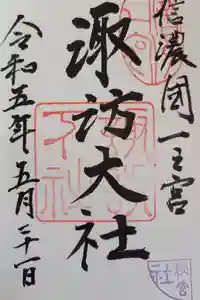 信濃國一之宮
諏訪大社
令和五年五月二十一日
秋宮
社